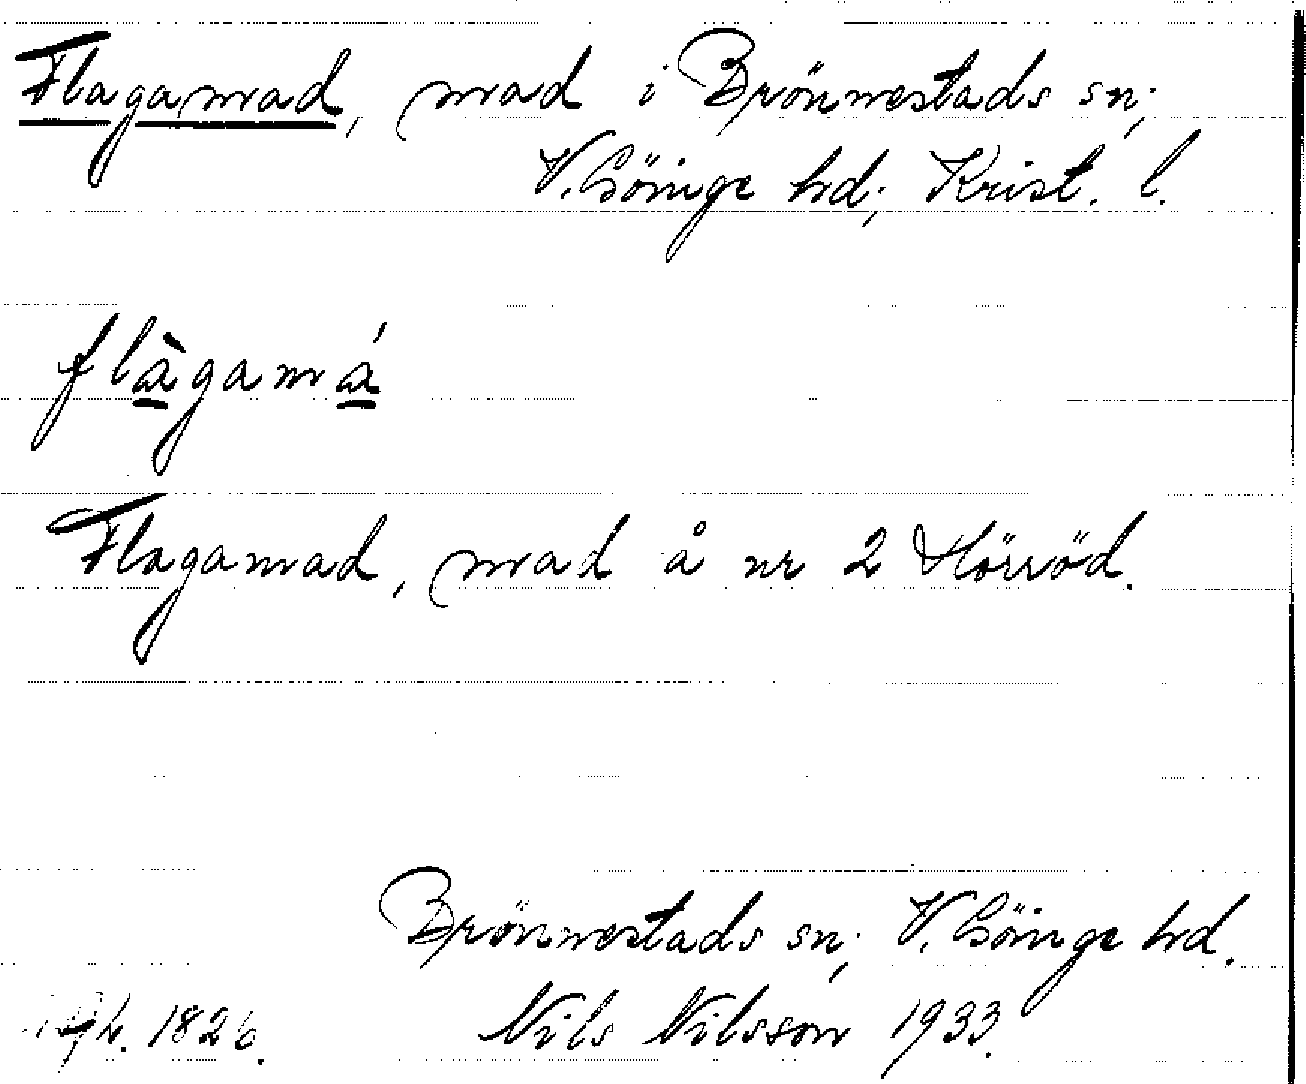 Flagamad, mad i Brönnestads sn;
V. Göinge hd; Krist. l.
flàgamá
Flagamad, mad å nr 2 Hörröd.
Brönnestads sn; V. Göinge hd.
1826. Nils Nilsson 1933.